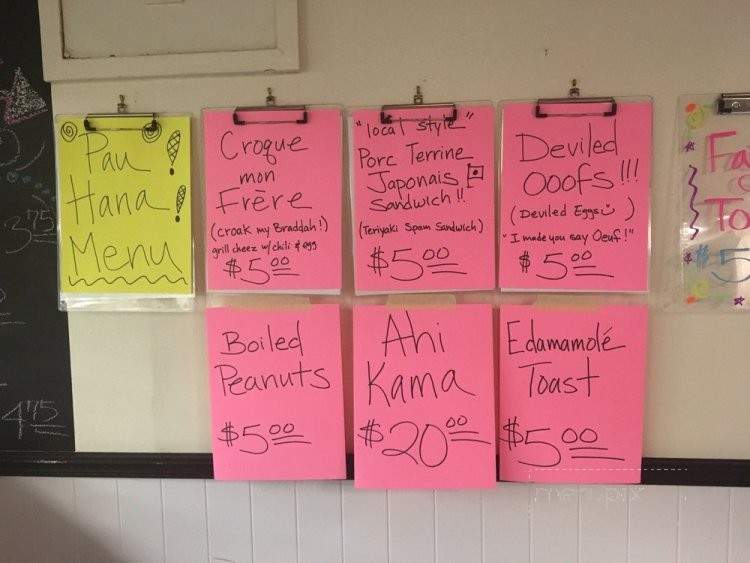 3.75
4.75
Pau
Hana
Menu!!
Croque
mon
Frère
(Croak my Braddah!)
grill cheez w/ chili & egg
$5.00
"local style"
Porc Terrine
Japonais
Sandwich!!
(Teriyaki Spam Sandwich)
$5.00
Deviled
Ooofs!!!
(Deviled Eggs)
"I made you say Oeuf!"
$5.00
Boiled
Peanuts
$5.00
Ahi
Kama
$20.00
Edamamolé
Toast
$5.00
Fa
To
$5
menupix